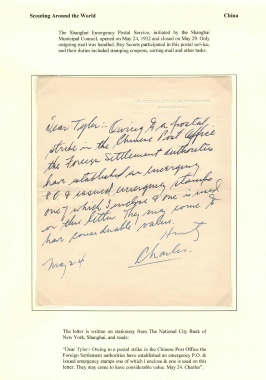 Scouting Around the World
China
The Shanghai Emergency Postal Service, initiated by the Shanghai
Municipal Council, opened on May 24, 1932 and closed on May 29. Only
outgoing mail was handled. Boy Scouts participated in this postal service,
and their duties included stamping coupons, sorting mail and other tasks.
Dear Tyler:- Owing to a postal
strike in the Chinese Post Office
the Foreign Settlement authorities
have established an emergency
P.O. & issued emergency stamps
one of which I enclose & one is used
on this letter. They may come to
have considerable value.
Charles.
May 24
The letter is written on stationery from The National City Bank of
New York, Shanghai, and reads:
"Dear Tyler:- Owing to a postal strike in the Chinese Post Office the
Foreign Settlement authorities have established an emergency P.O. &
issued emergency stamps one of which I enclose & one is used on this
letter. They may come to have considerable value. May 24. Charles".